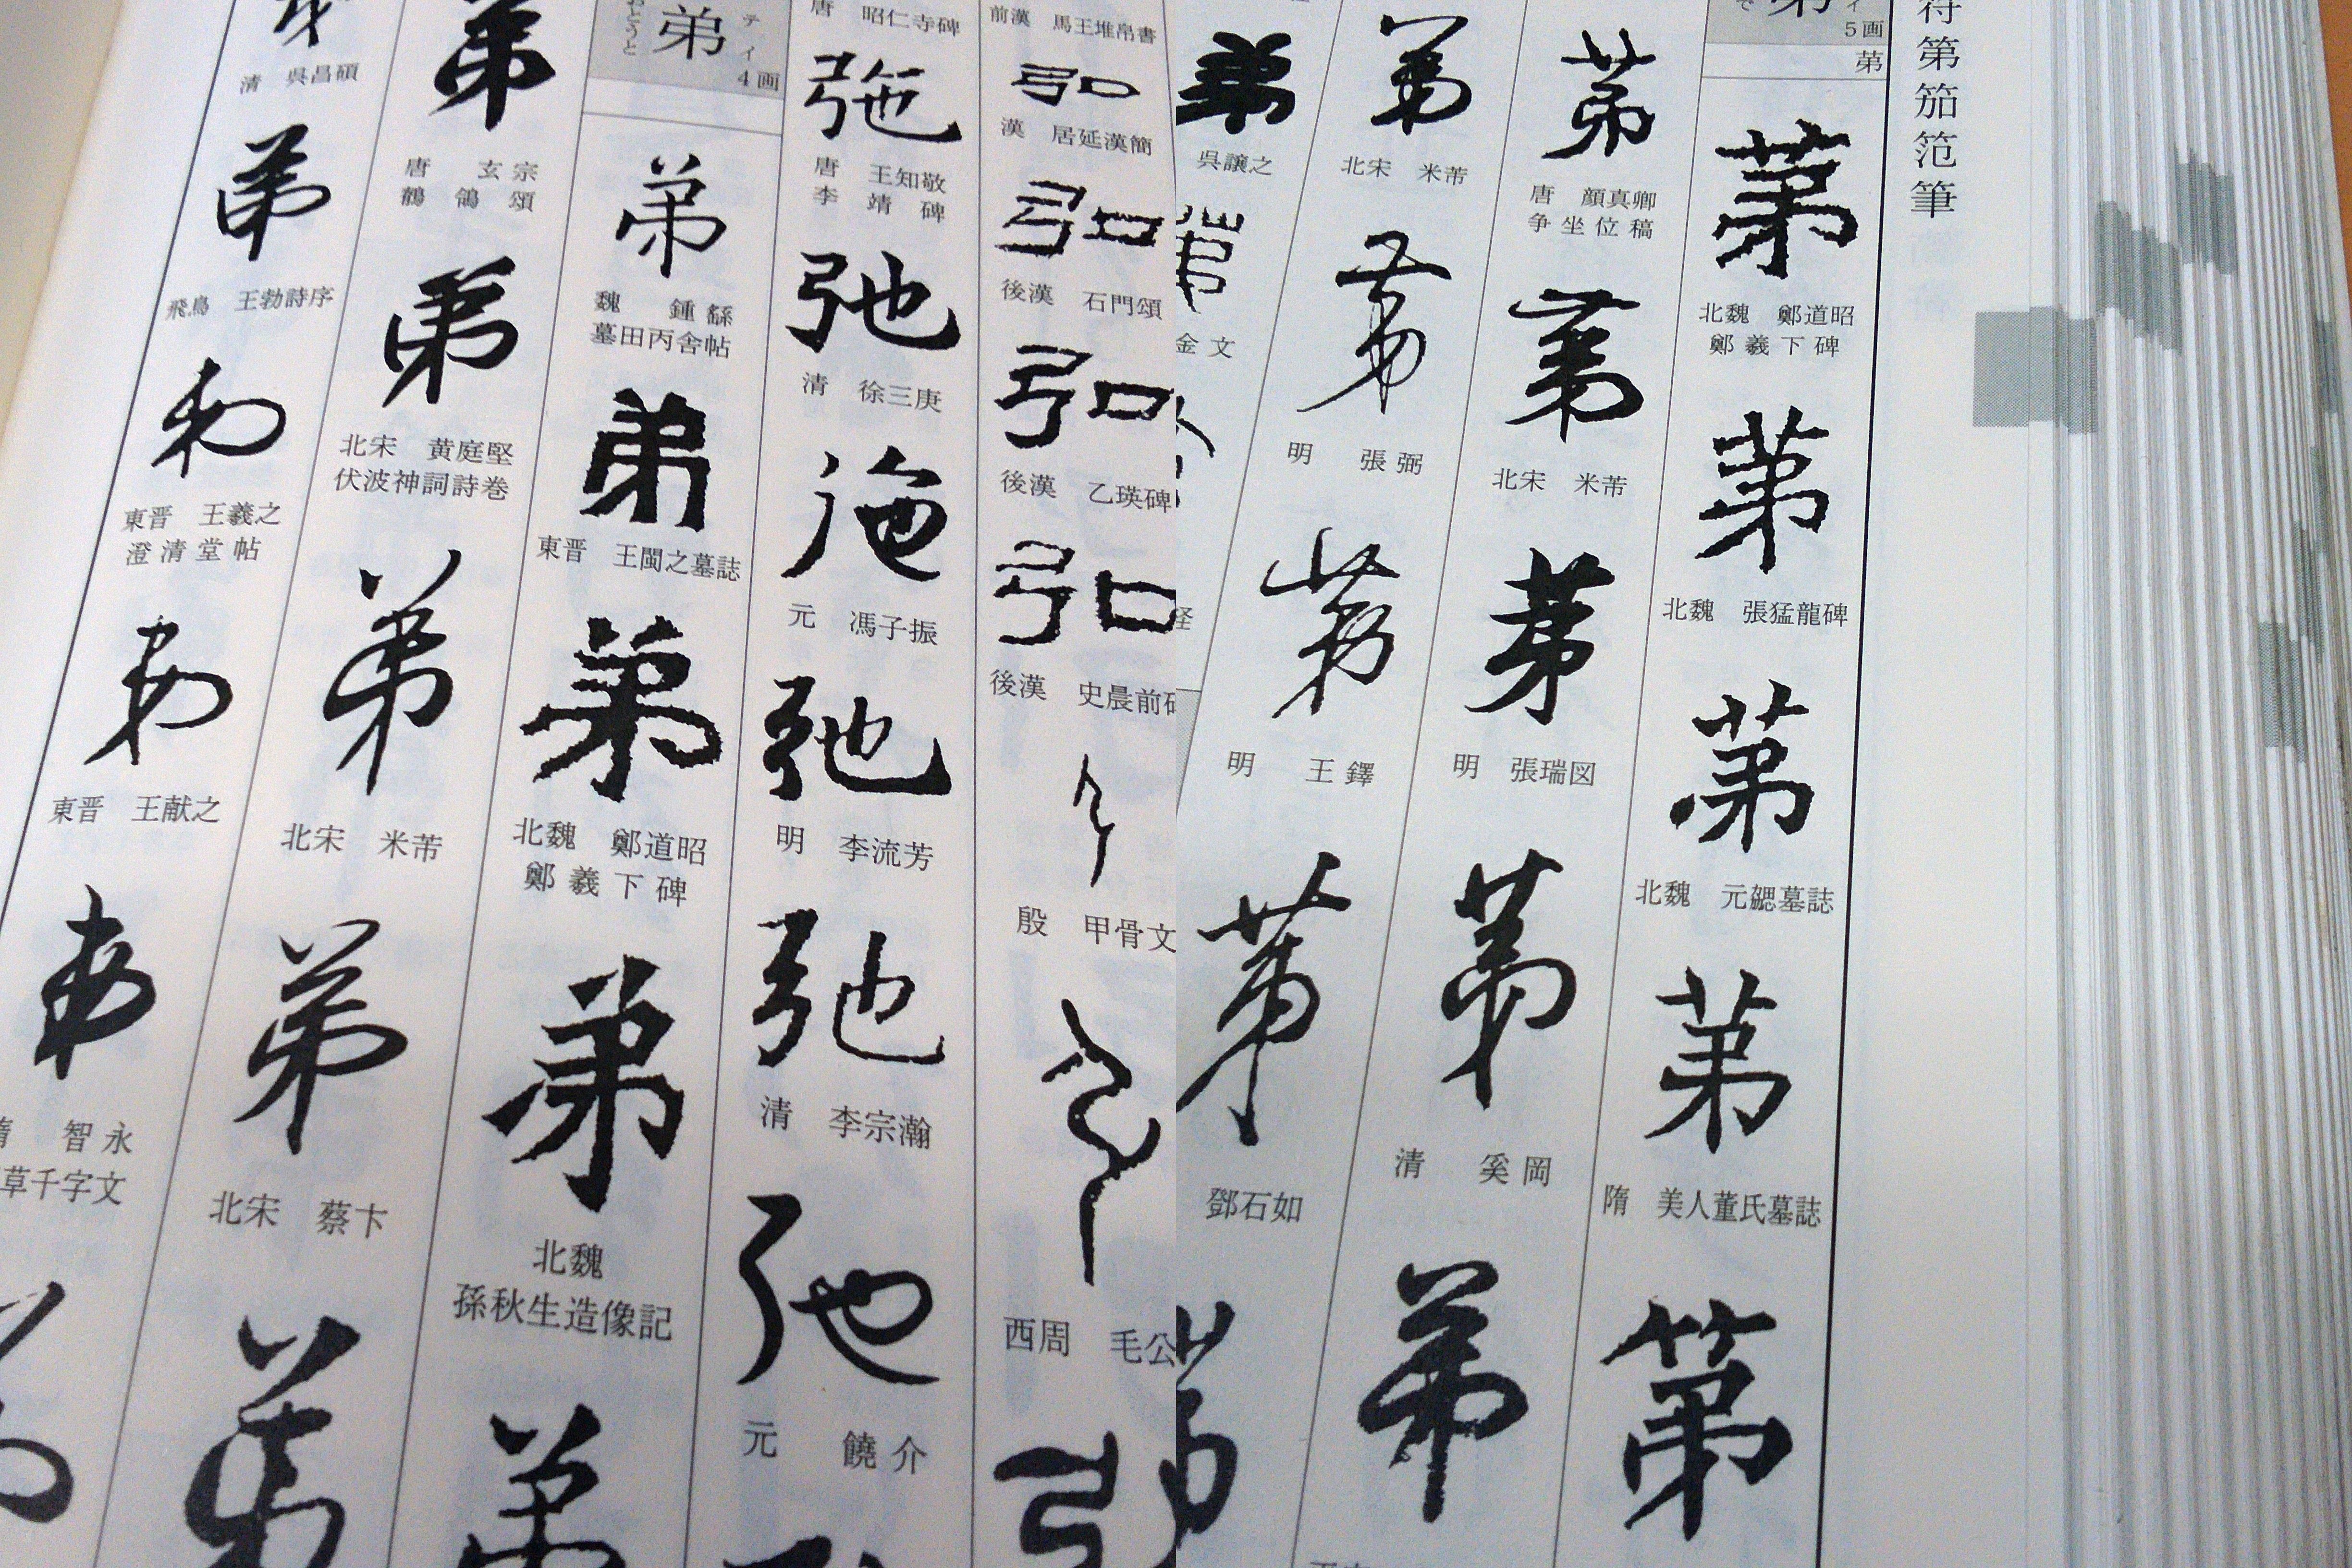 符第笳范筆
5画
第
北魏 鄭道昭
鄭羲下碑
北魏 張猛龍碑
北魏 元勰墓誌
隋 美人董氏墓誌
唐 顔真卿
争坐位稿
北宋 米芾
明 張瑞図
清 奚岡
北宋 米芾
明 張弼
明 王鐸
鄧石如
呉譲之
金文
前漢 馬王堆帛書
漢 居延漢簡
後漢 石門頌
後漢 乙瑛碑
後漢 史晨前碑
殷 甲骨文
西周 毛公
唐 昭仁寺碑
弛
唐 王知敬
李靖碑
弛
清 徐三庚
弛
元 馮子振
弛
明 李流芳
弛
清 李宗瀚
弛
元 饒介
弟
テイ
4画
おとうと
弟
魏 鍾繇
墓田丙舎帖
弟
東晋 王閩之墓誌
弟
北魏 鄭道昭
鄭羲下碑
弟
北魏
孫秋生造像記
弟
弟
唐 玄宗
鶺鴒頌
弟
北宋 黄庭堅
伏波神詞詩巻
弟
北宋 米芾
弟
北宋 蔡卞
弟
清 呉昌碩
弟
飛鳥 王勃詩序
弟
東晋 王羲之
澄清堂帖
弟
東晋 王献之
弟
隋 智永
草千字文